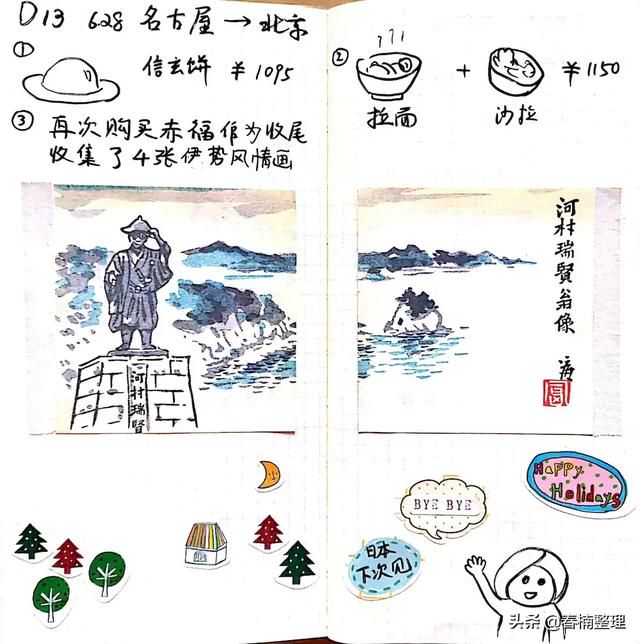 D13 6.28 名古屋→北京
①
信玄饼 ¥1095
③ 再次购买赤福作为收尾
收集了4张伊势风情画
河村瑞賢
②
+
¥1150
拉面
沙拉
河村瑞賢翁像
HAPPY
Holidays
BYE BYE
日本
下次见
头条 @春楠整理